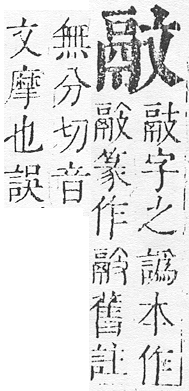 字之譌本作
篆作舊註
無分切音
文摩也誤